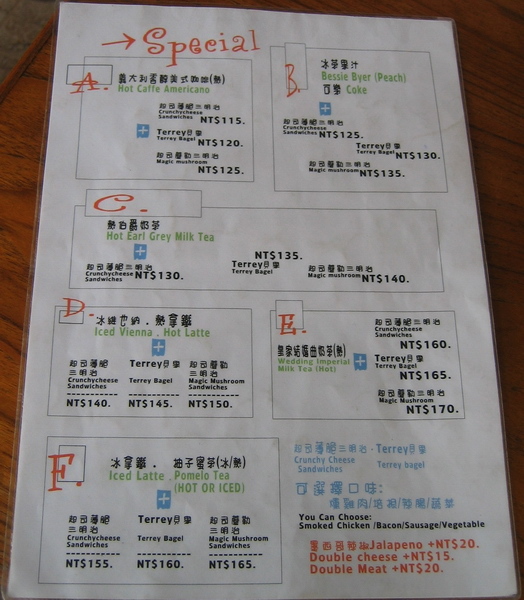 →Special
A.
義大利香醇美式咖啡(熱)
Hot Caffe Americano
起司薄脆三明治
Crunchycheese
Sandwiches
NT$115.
+
Terrey貝果
Terrey Bagel
NT$120.
起司蘑菇三明治
Magic mushroom
NT$125.
B.
冰苹果汁
Bessie Byer (Peach)
可樂 Coke
+
起司薄脆三明治
Crunchycheese
Sandwiches
NT$125.
Terrey貝果
Terrey Bagel
NT$130.
起司蘑菇三明治
Magic mushroom
NT$135.
C.
熱伯爵奶茶
Hot Earl Grey Milk Tea
+
起司薄脆三明治
Crunchycheese
Sandwiches
NT$130.
NT$135.
Terrey貝果
Terrey Bagel
起司蘑菇三明治
Magic mushroom
NT$140.
D.
冰維也納．熱拿鐵
Iced Vienna . Hot Latte
+
起司薄脆
三明治
Crunchycheese
Sandwiches
NT$140.
Terrey貝果
Terrey Bagel
NT$145.
起司蘑菇
三明治
Magic Mushroom
Sandwiches
NT$150.
E.
皇家結婚曲奶茶(熱)
Wedding Imperial
Milk Tea (Hot)
+
起司薄脆三明治
Crunchycheese
Sandwiches
NT$160.
Terrey貝果
Terrey Bagel
NT$165.
起司蘑菇三明治
Magic Mushroom
NT$170.
F.
冰拿鐵． 柚子蜜茶(冰/熱)
Iced Latte . Pomelo Tea
(HOT OR ICED)
+
起司薄脆
三明治
Crunchycheese
Sandwiches
NT$155.
Terrey貝果
Terrey Bagel
NT$160.
起司蘑菇
三明治
Magic Mushroom
Sandwiches
NT$165.
起司薄脆三明治-Terrey貝果
Crunchy Cheese
Sandwiches
Terrey bagel
可選擇口味:
燻雞肉/培根/辣腸/蔬菜
You Can Choose:
Smoked Chicken /Bacon/Sausage/Vegetable
墨西哥辣椒Jalapeno +NT$20.
Double cheese +NT$15.
Double Meat +NT$20.